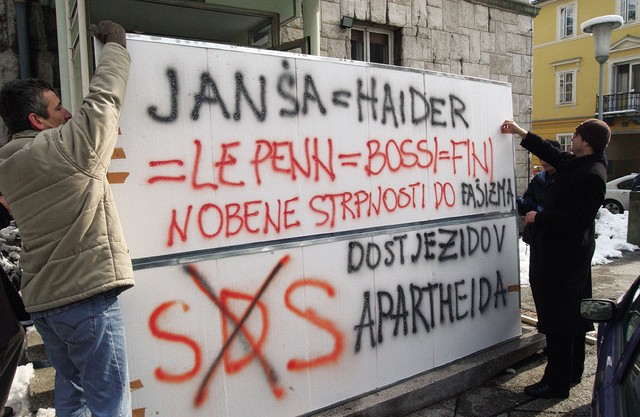 JANŠA=HAIDER
=LE PENN=BOSSI=FINI
NOBENE STRPNOSTI DO FAŠIZMA
DOSTJEZIDOV
APARTHEIDA
SDS